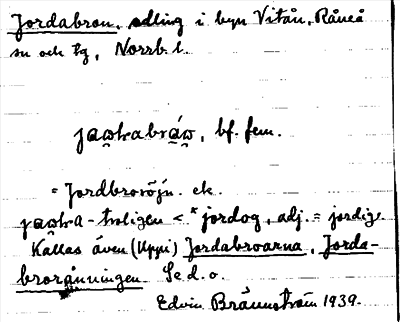 Jordabron, odling i byn Vitån, Råneå
sn och tg, Norrb. l.
bf. fem.
= Jordbroröjn. ek.
troligen < *jordog, adj. = jordig.
Kallas även (Uppi) Jordabroarna, Jorda-
broränningen Se d. o.
Edvin Brännström 1939.